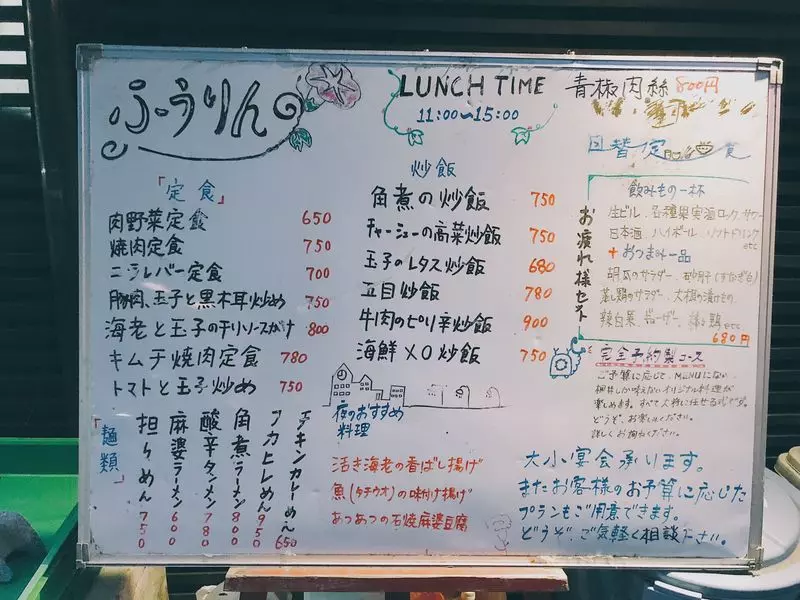 ふうりん
LUNCH TIME
11:00〜15:00
青椒肉絲 800円
日替定食
「定食」
肉野菜定食 650
焼肉定食 750
ニラレバー定食 700
豚肉、玉子と黒木耳炒め 750
海老と玉子のチリソースがけ 800
キムチ焼肉定食 780
トマトと玉子炒め 750
炒飯
角煮の炒飯 750
チャーシューの高菜炒飯 750
玉子のレタス炒飯 680
五目炒飯 780
牛肉のピリ辛炒飯 900
海鮮XO炒飯 750
お疲れ様セット
飲みもの一杯
生ビール、各種果実酒ロック、サワー
日本酒、ハイボール、ソフトドリンク
etc
+おつまみ一品
胡瓜のサラダー、砂肝(すなぎも)
蒸し鶏のサラダー、大根の漬けもの
辣白菜、 etc
680円
完全予約製コース
ご予算に応じて、MENUにない
オリジナル料理が
楽しめます。すべて大将に任せる式です。
どうぞ、お楽しみください。
詳しくお尋ねください。
「麺類」
担々めん 750
麻婆ラーメン 600
酸辛タンメン 780
角煮ラーメン 800
フカヒレめん 950
チキンカレーめん 650
夜のおすすめ
料理
活き海老の香ばし揚げ
魚(タチウオ)の味付け揚げ
あつあつの石焼麻婆豆腐
大小宴会承ります。
またお客様のお予算に応じた
プランもご用意できます。
どうぞ、ご気軽く相談下さい。